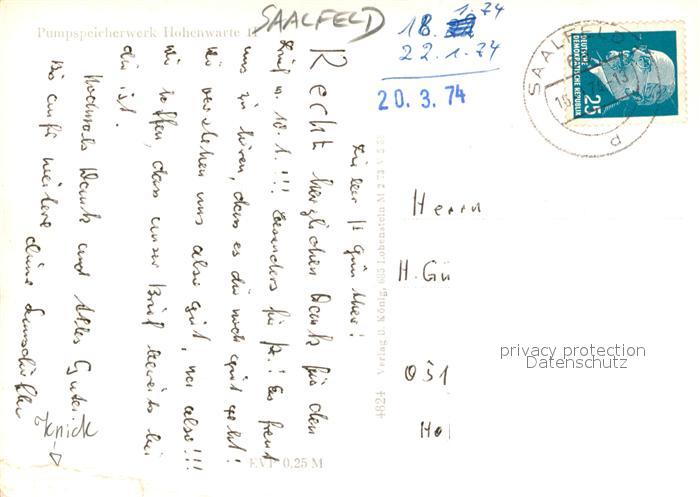 Pumpspeicherwerk Hohenwarte II
SAALFELD
18. 1.74
22.1.74
20.3.74
SAALFELD
DEUTSCHE
DEMOKRATISCHE REPUBLIK
25
Lieber H Günther!
Recht herzlichen Dank für den
Brief v. 10.1.!!! Besonders für Es freut
uns zu hören, dass es dir noch gut geht!
Wir verstehen uns also gut, na also!!!
Wir hoffen, dass unser Brief bereits bei
dir ist.
Nochmals Dank und Alles Gute
Bis auf weitere deine
Knick
4824 Verlag R. König, 685 Lobenstein
EVP 0,25 M
Herrn
H. Gü
privacy protection
Datenschutz
Ho